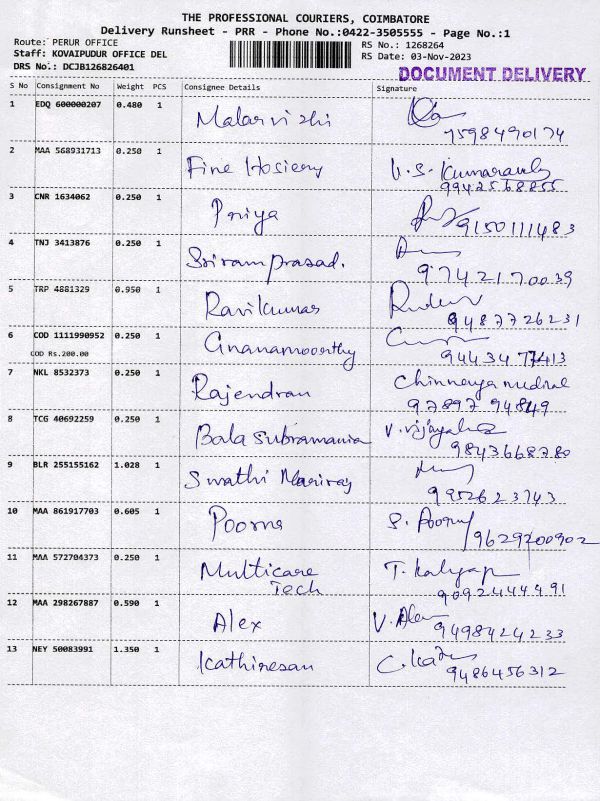 THE PROFESSIONAL COURIERS, COIMBATORE
Delivery Runsheet - PRR - Phone No.:0422-3505555 - Page No.:1
Route: PERUR OFFICE RS No.: 1268264
Staff: KOVAIPUDUR OFFICE DEL RS Date: 03-Nov-2023
DRS No.: DCJB126826401 DOCUMENT DELIVERY
S No Consignment No Weight PCS Consignee Details Signature
1 EDQ 600000207 0.480 1 Malarvizhi
7598490174
2 MAA 568931713 0.250 1 Fine Hosiery V.S. Kumaravel
9942568855
3 CNR 1634062 0.250 1 Priya 9150111483
4 TNJ 3413876 0.250 1 Sriramprasad.
9742170039
5 TRP 4881329 0.950 1 Ravikumar
9487726231
6 COD 1111990952 0.250 1 Gnanamoorthy
COD Rs.200.00 9443477413
7 NKL 8532373 0.250 1 Rajendran
97897 94849
8 TCG 40692259 0.250 1 Balasubramania
9843668780
9 BLR 255155162 1.028 1 Swathi Mariraj
9952623743
10 MAA 861917703 0.605 1 Poorna
9629200902
11 MAA 572704373 0.250 1 Multicare T. Kalyap
Tech 9092444491
12 MAA 298267887 0.590 1 Alex V. Alex
9498424233
13 NEY 50083991 1.350 1 Kathiresan
9486456312